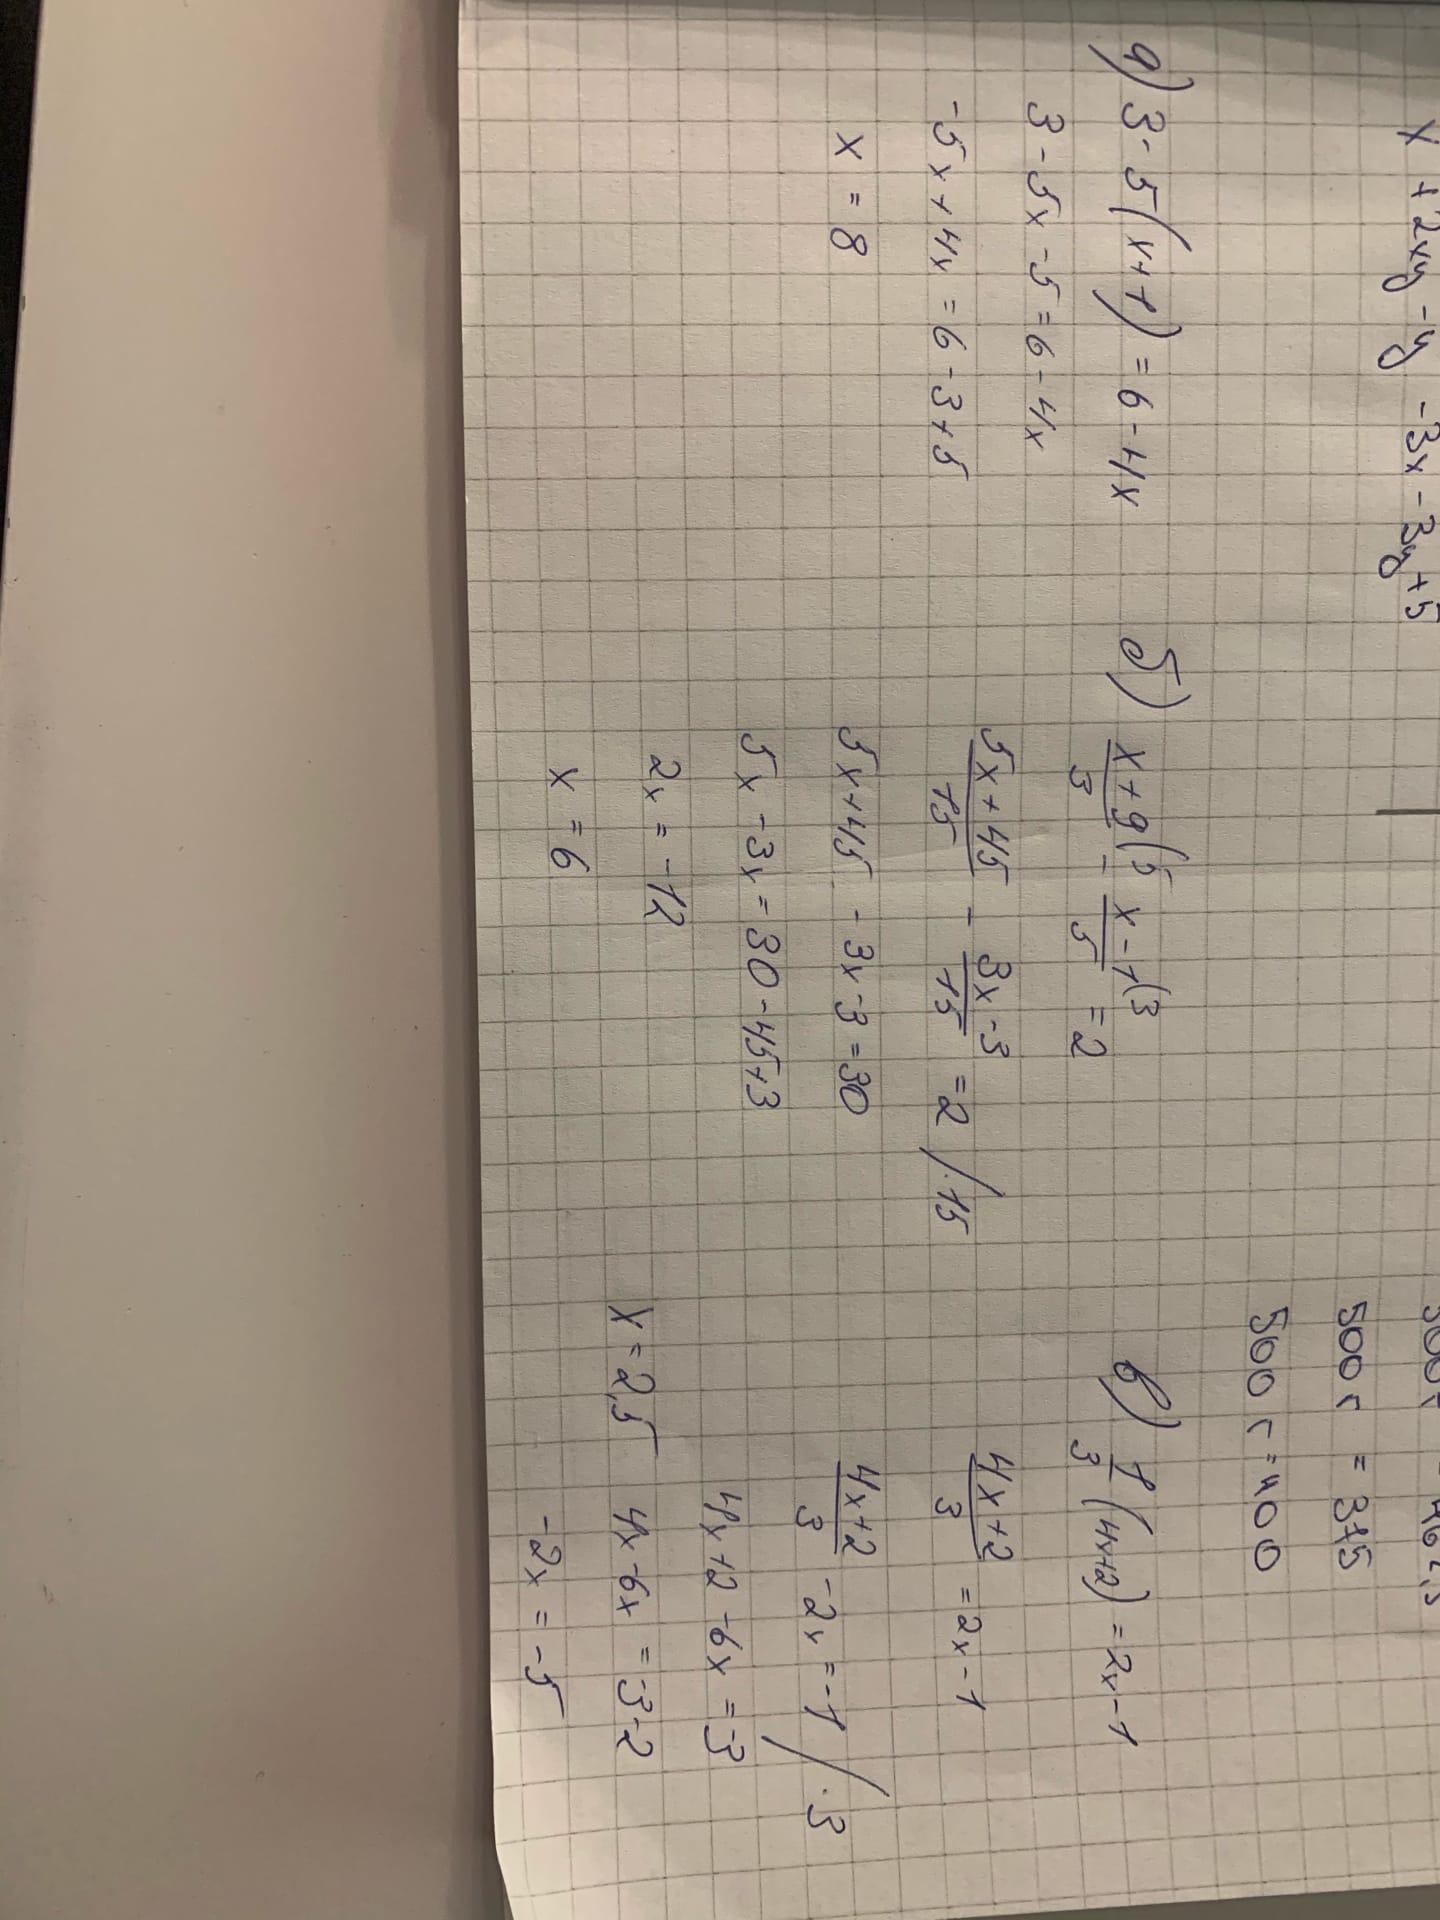 x + 2xy - y - 3x - 3y + 5
500 г = 375
500 г = 400
а) 3 - 5(x+1) = 6 - 4x
3 - 5x - 5 = 6 - 4x
-5x + 4x = 6 - 3 + 5
x = 8
б) (x+9)/3 (5 - (x-1)/5 (3 = 2
(5x+45)/15 - (3x-3)/15 = 2 /·15
5x+45 - 3x-3 = 30
5x - 3x = 30 - 45+3
2x = -12
x = 6
в) 1/3 (4x+2) = 2x - 1
(4x+2)/3 = 2x - 1
(4x+2)/3 - 2x = -1 /·3
4x+2 - 6x = -3
4x - 6x = -3-2
-2x = -5
x = 2,5